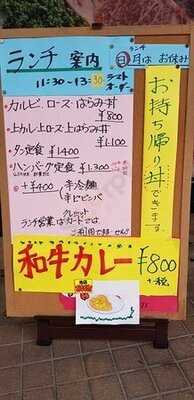 ランチ 案内
11:30-13:30 ラストオーダー
ランチ
月 月は お休み
カルビ、ロース・はらみ丼
¥800
上カルビ・上ロース・上はらみ丼
¥1.100
タン定食 ¥1400
ハンバーグ定食 ¥1.300
+¥400
半冷麺
半ビビンバ
ランチ営業はカードでは
ご利用できません
お持ち帰り丼できます
和牛カレー ¥800
+税